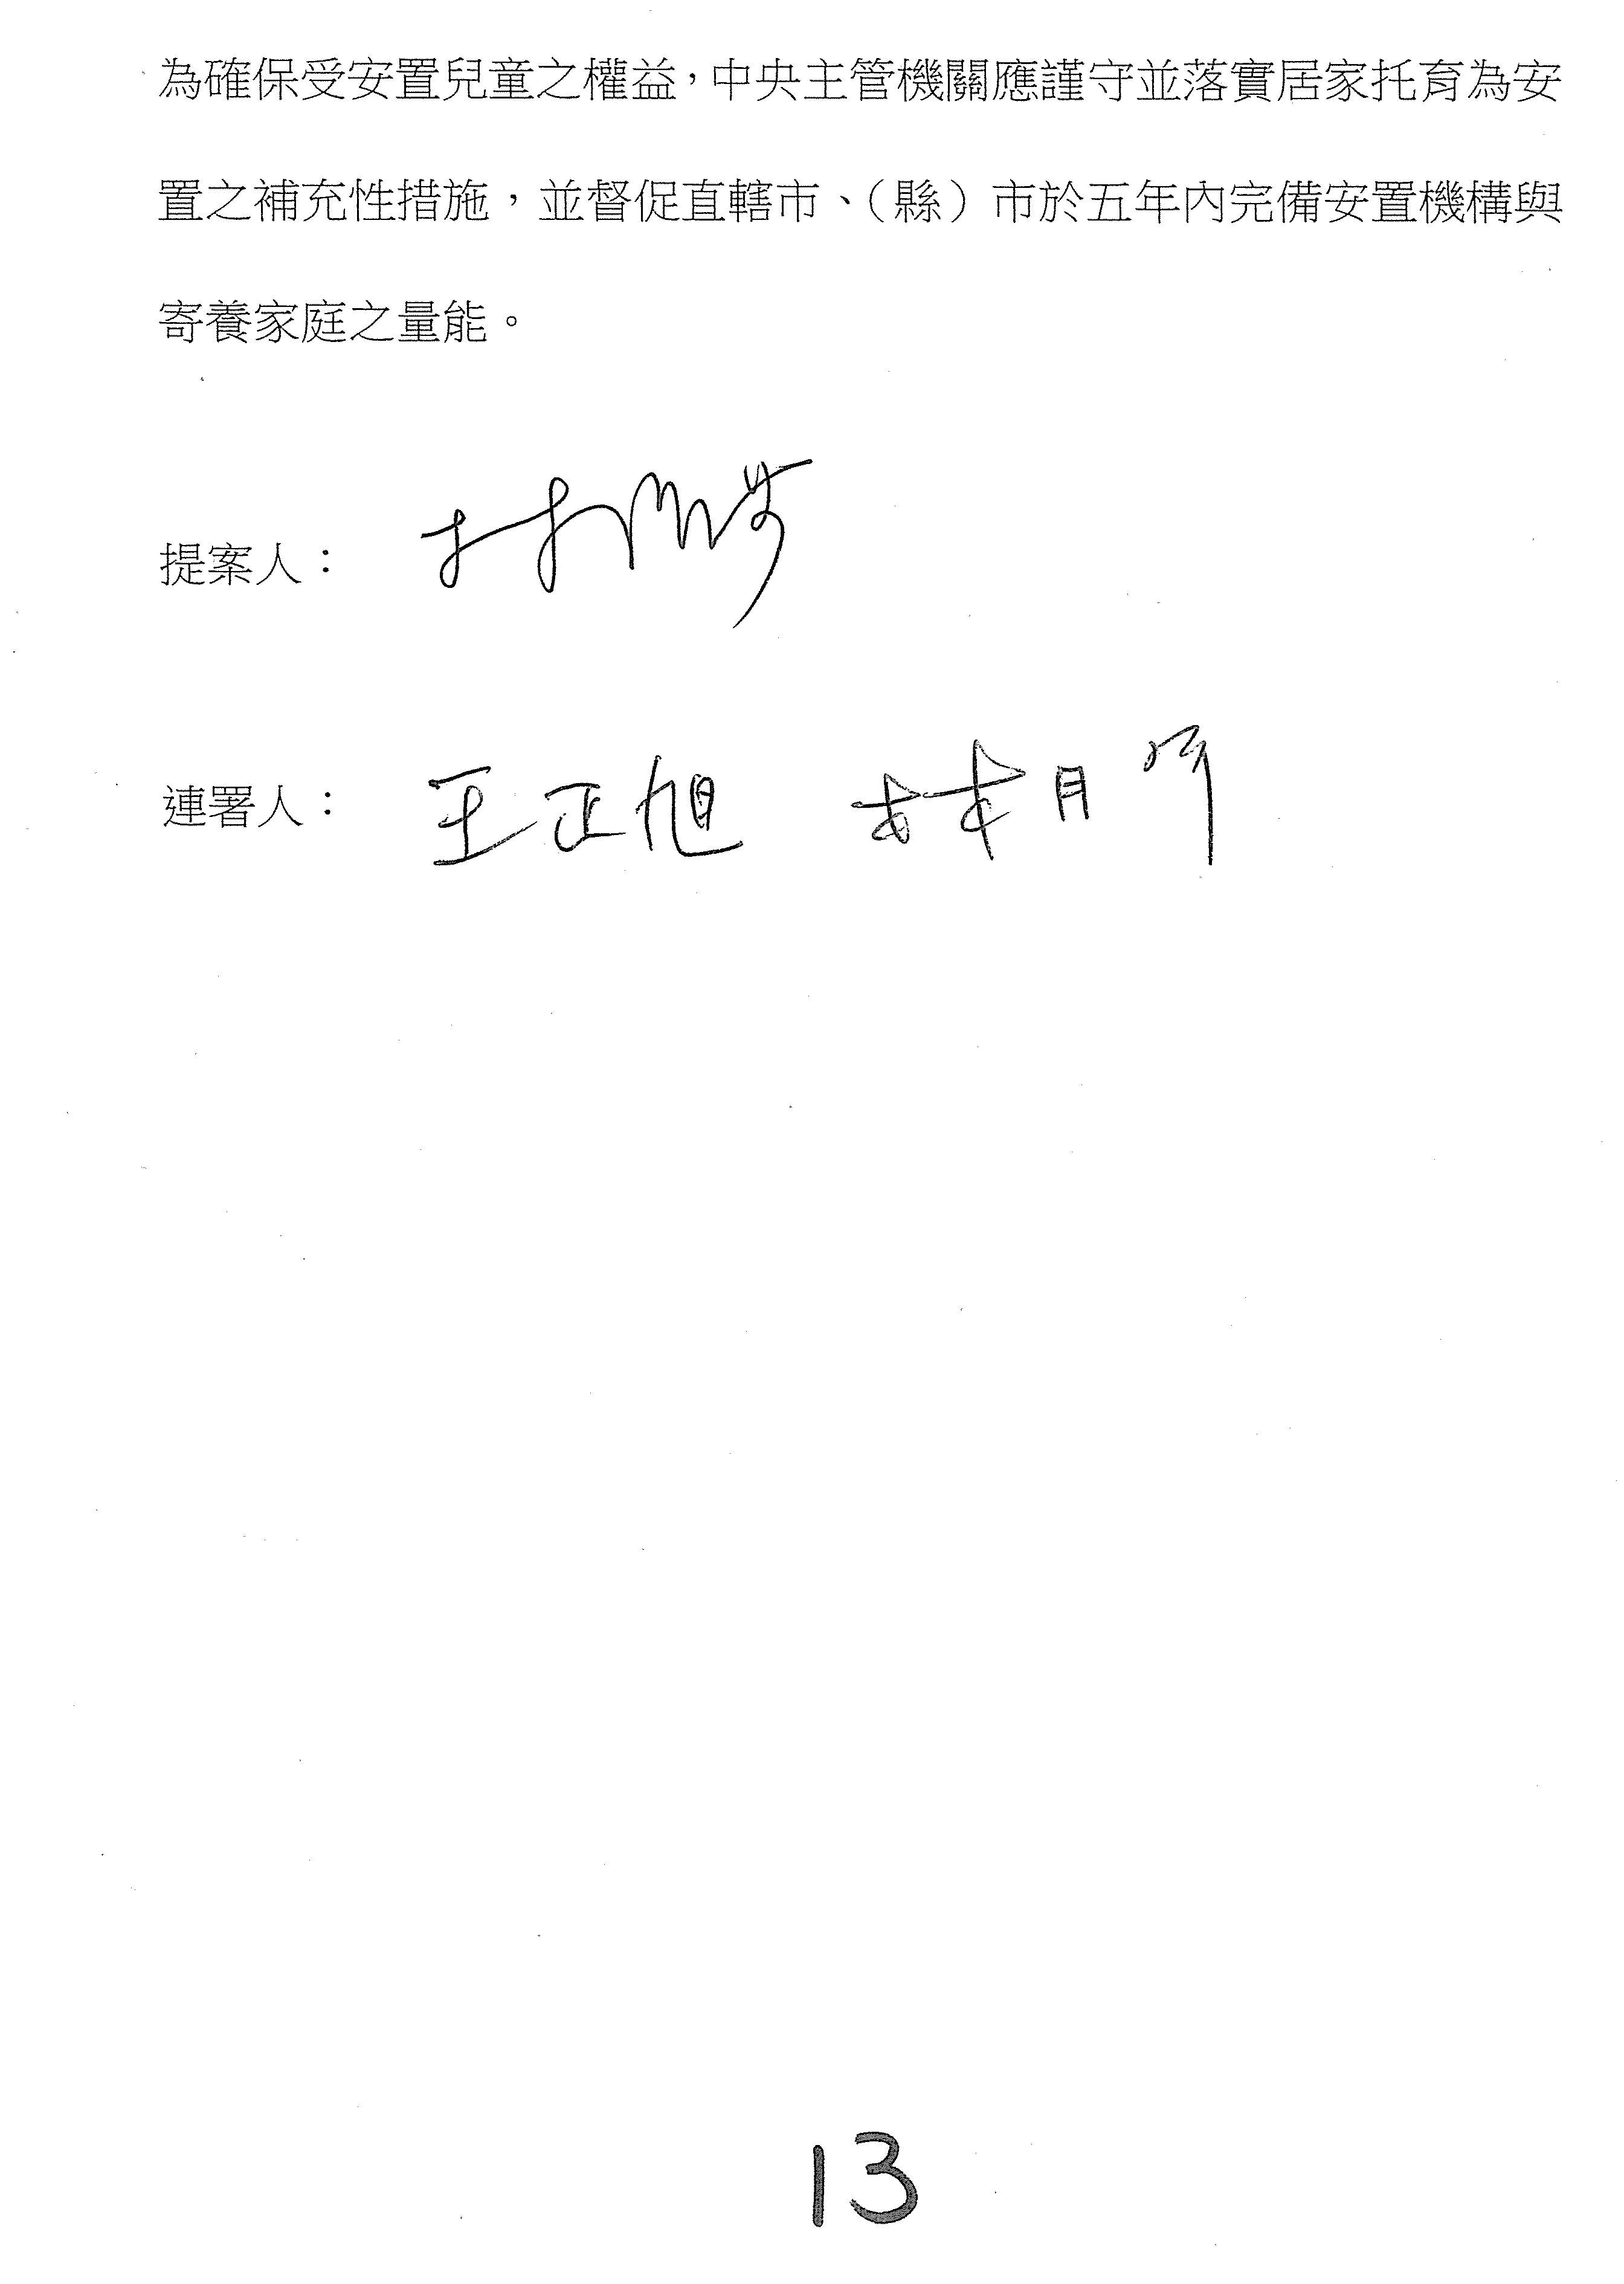 為確保受安置兒童之權益,中央主管機關應謹守並落實居家托育為安
置之補充性措施,並督促直轄市、(縣)市於五年內完備安置機構與
寄養家庭之量能。
提案人: 林
連署人: 王正旭 林月琴
13